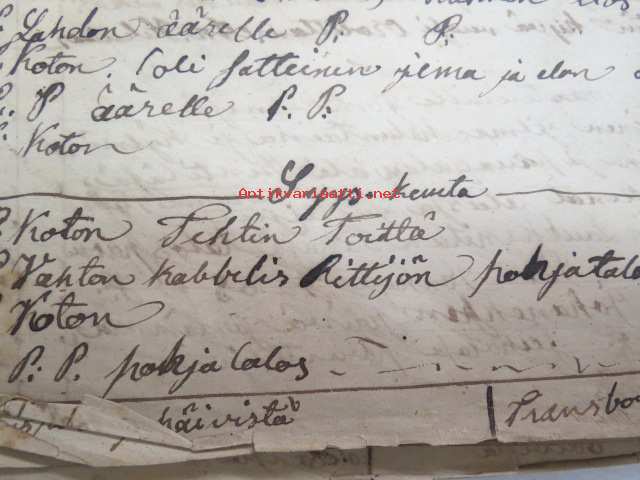 Lahdon äärelle P: P:
Koton. (oli satteinen ilma ja elon
P äärelle P: P:
Koton
Syys-kuuta
Antikvariaatti.net
Koton Tehtin Töittä
Vahton kabbelis Rittijön pohjatalo
Koton
P: P. pohjatalos
päivistä
Transpo